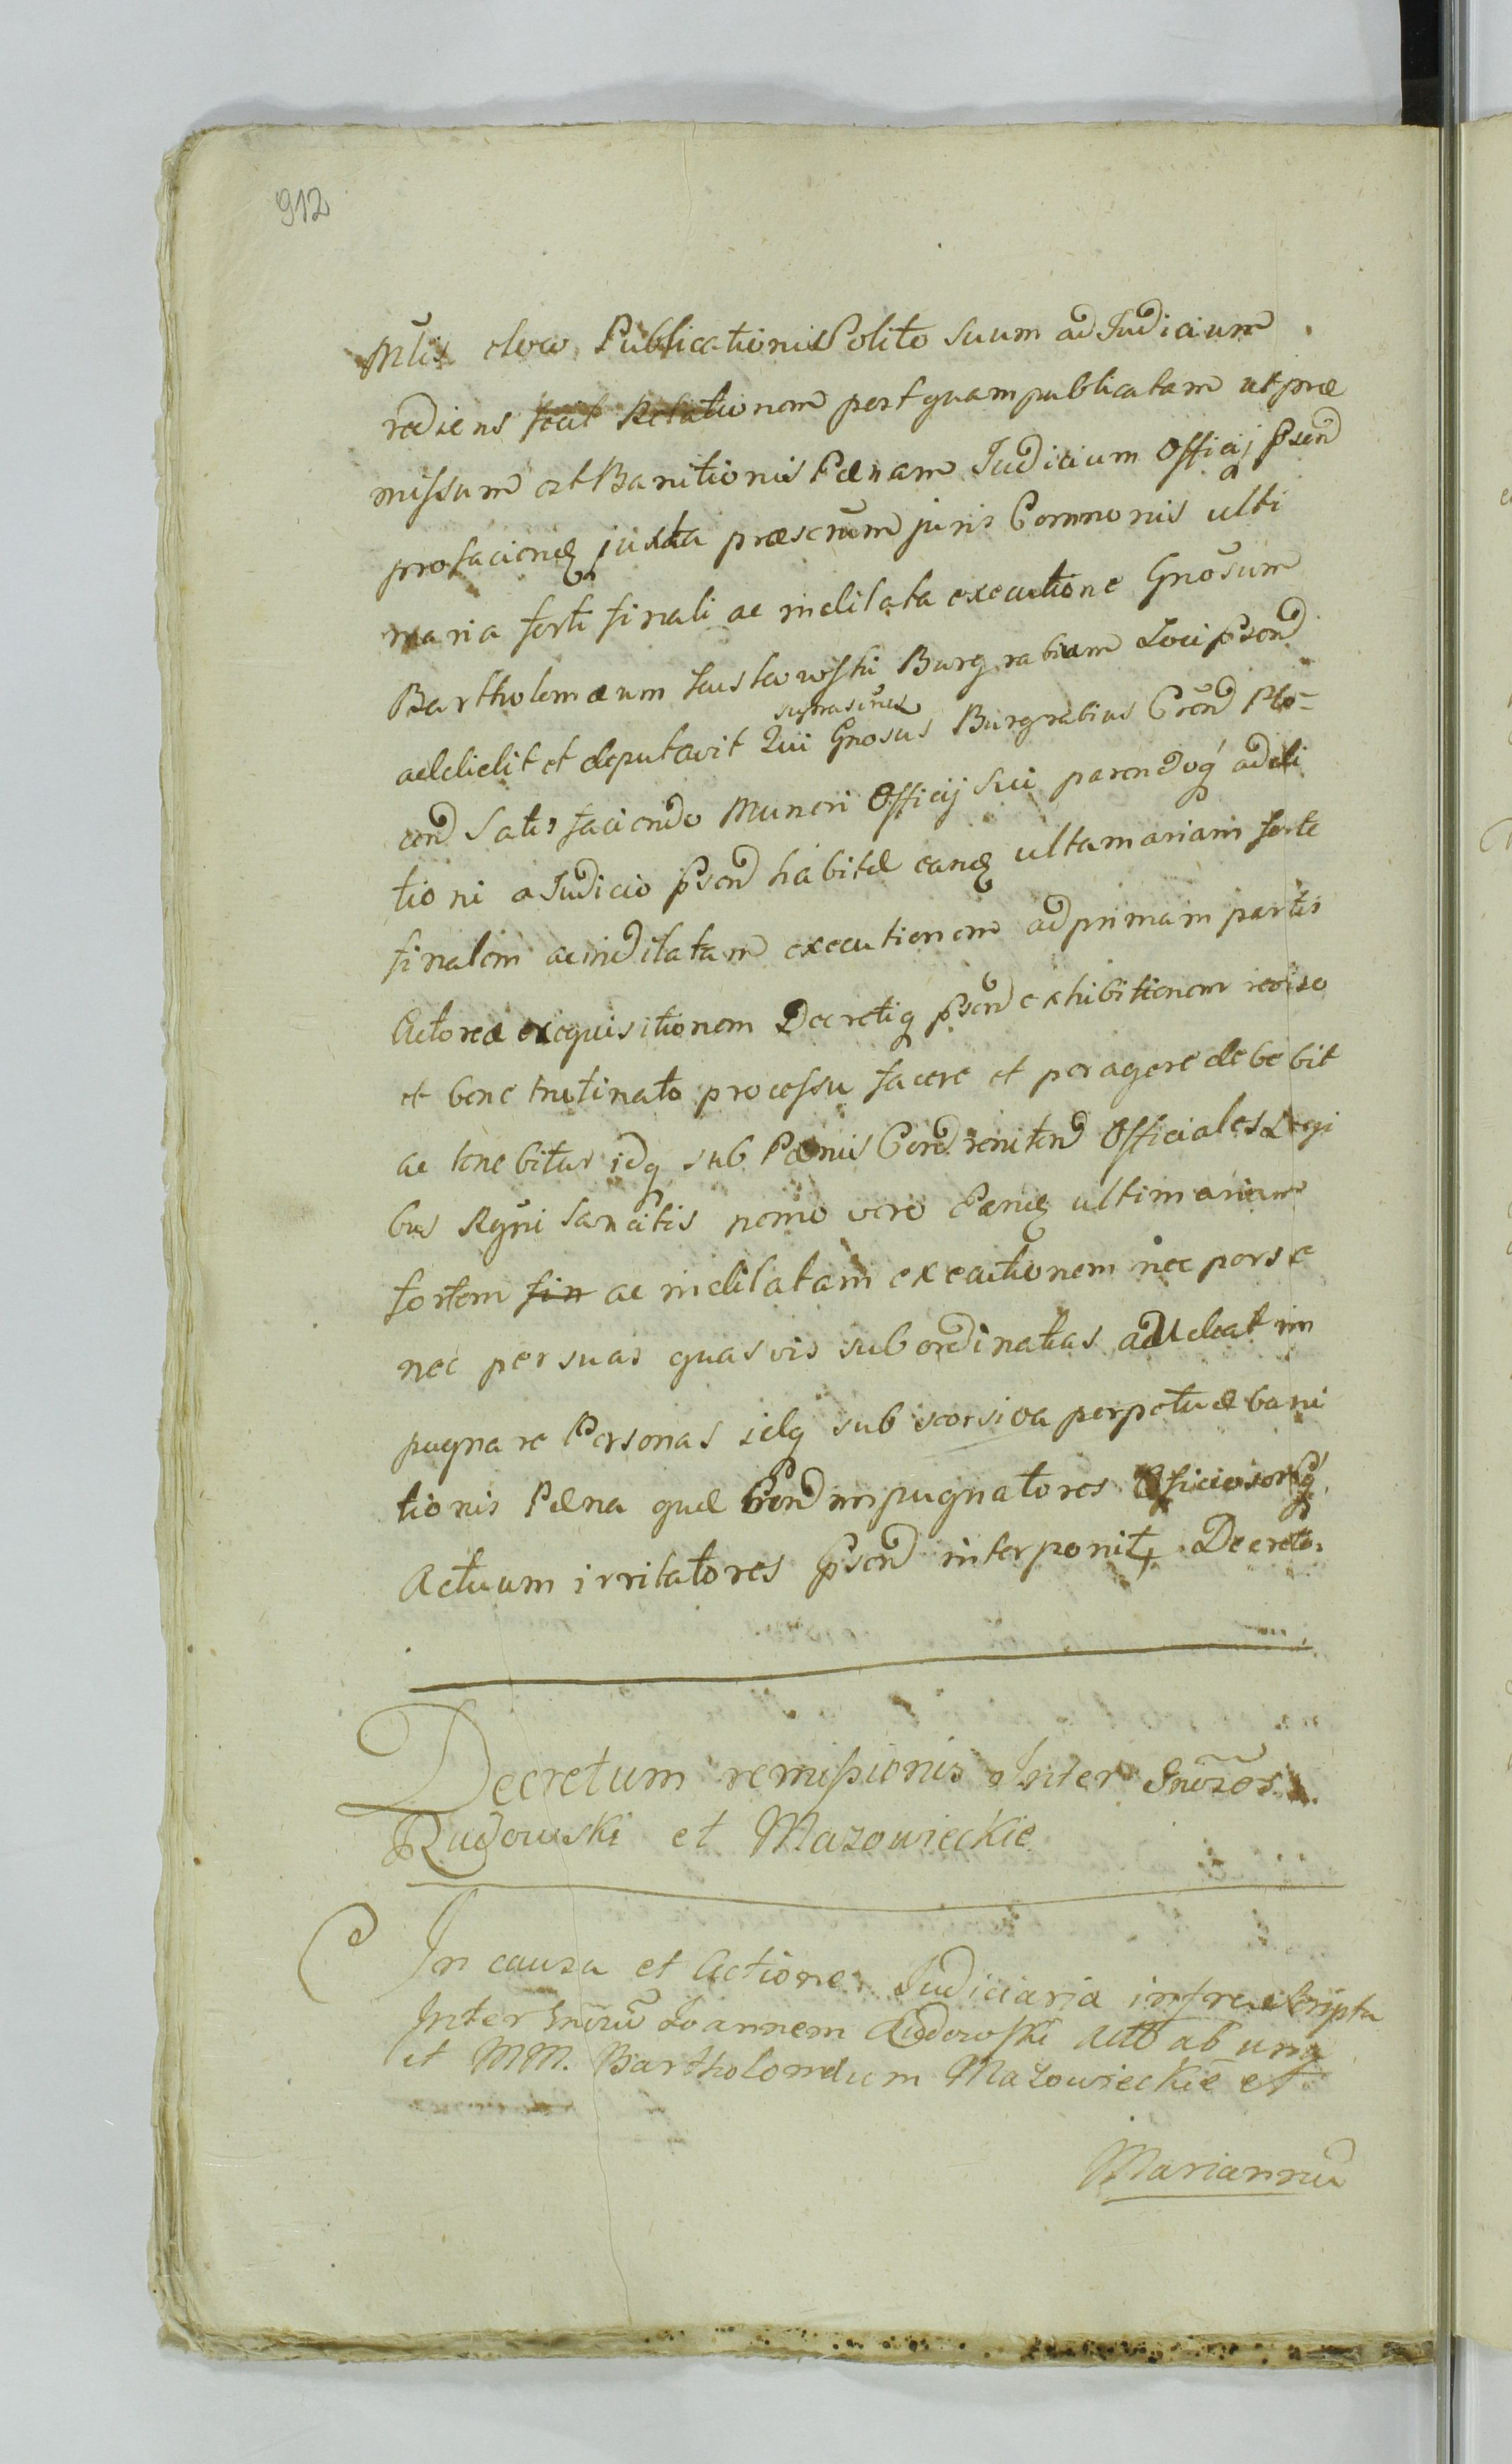 912
Mtis eloco Publicationis Solito suum ad Judicium
rediens fecit Relationem postquam publicatam ut præ
missum est Banitionis Pænam Judicium Officij pñsend
pro faciendq juxta præscrum juris Commonis ulti
maria forti finali ac indilata executione Gnosum
Bartholomæum Burgrabium Loci pñsend
suprascrius
addidit et deputavit Qui Gnosus Burgrabius Crend Plo-
cend Satisfaciendo Muneri Officij Sui parendoq́ additi
tioni a Judicio pñsend habitæ eandq ultamariam forte
finalem ac indilatam executionem ad primam partis
Actoreæ exequisitionem Decretiq pñsend exhibitionem reviso
et bene trutinato processu facere et peragere debebit
ac tenebitur idq sub Pænis Cend renitend Officiales Legi
bus Regni Sancitis nemo vero Eandq ultimariam
fortem fin ac indilatam executionem nec per se
nec per suas quasvis subordinatas audeat im
pugnare Personas idq sub seorsiva perpetuæ bani
tionis Pæna quæ Crend impugnatores Officiosorq́
Actuum irritatores pñsend interponit Decreto.
Decretum remissionis Inter Gnosos
Rudowski et Mazowieckie
In causa et Actione Judiciaria infrascripta
Inter Gnosum Joannem Rudowski Act ab una
et MM. Bartholomæum Mazowieckie et
Mariannā